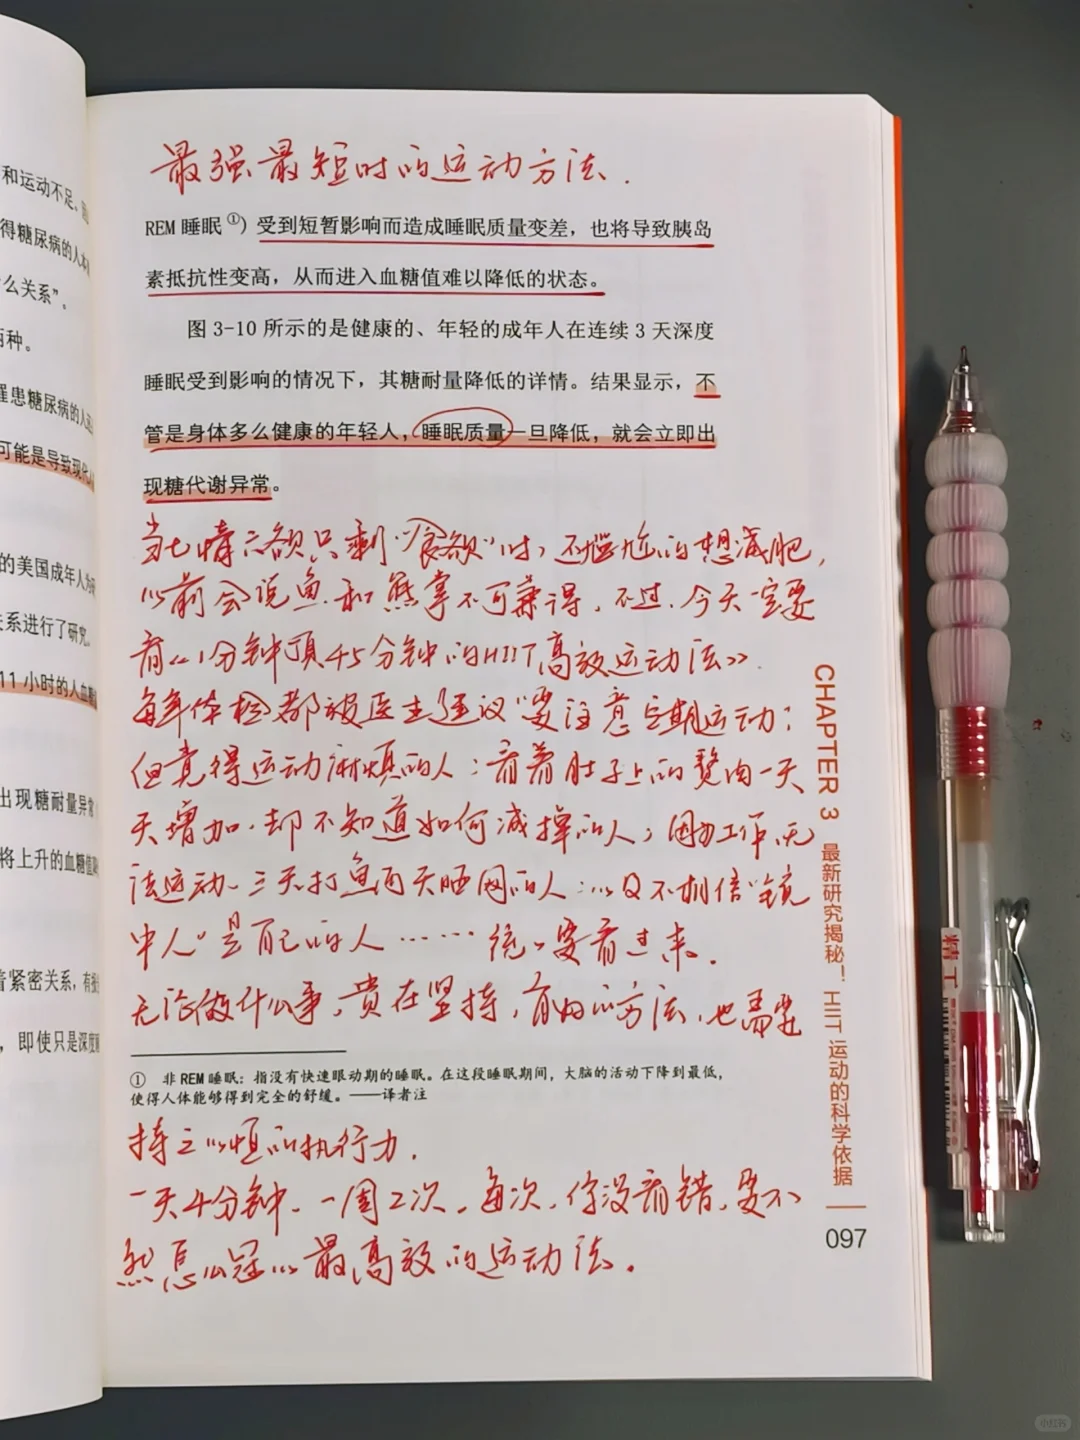 最强最短时的运动方法.
REM 睡眠①) 受到短暂影响而造成睡眠质量变差，也将导致胰岛
素抵抗性变高，从而进入血糖值难以降低的状态。
图 3-10 所示的是健康的、年轻的成年人在连续 3 天深度
睡眠受到影响的情况下，其糖耐量降低的详情。结果显示，不
管是身体多么健康的年轻人，睡眠质量一旦降低，就会立即出
现糖代谢异常。
当七情六欲只剩“食欲”时，不尴尬的想减肥，
以前会说鱼和熊掌不可兼得，不过，今天一定要
看《1分钟顶45分钟的HIIT高效运动法》.
每年体检都被医生建议“要注意定期运动；
但觉得运动麻烦的人；看着肚子上的赘肉一天
天增加，却不知道如何减掉的人；因为工作无
法运动、三天打鱼两天晒网的人；以及不相信“镜
中人”是自己的人……统一要看过来.
无论做什么事，贵在坚持，有好的方法，也需要
① 非 REM 睡眠：指没有快速眼动期的睡眠。在这段睡眠期间，大脑的活动下降到最低，
使得人体能够得到完全的舒缓。——译者注
持之以恒的执行力.
一天4分钟、一周2次，每次，你没看错，要不
然怎么冠以最高效的运动法.
CHAPTER 3 最新研究揭秘！HIIT 运动的科学依据
097
和运动不足。
得糖尿病的人
么关系”。
两种。
罹患糖尿病的人
可能是导致现代
的美国成年人为
关系进行了研究。
11 小时的人血糖
出现糖耐量异常
将上升的血糖值
着紧密关系，有
，即使只是深度
精工
小红书